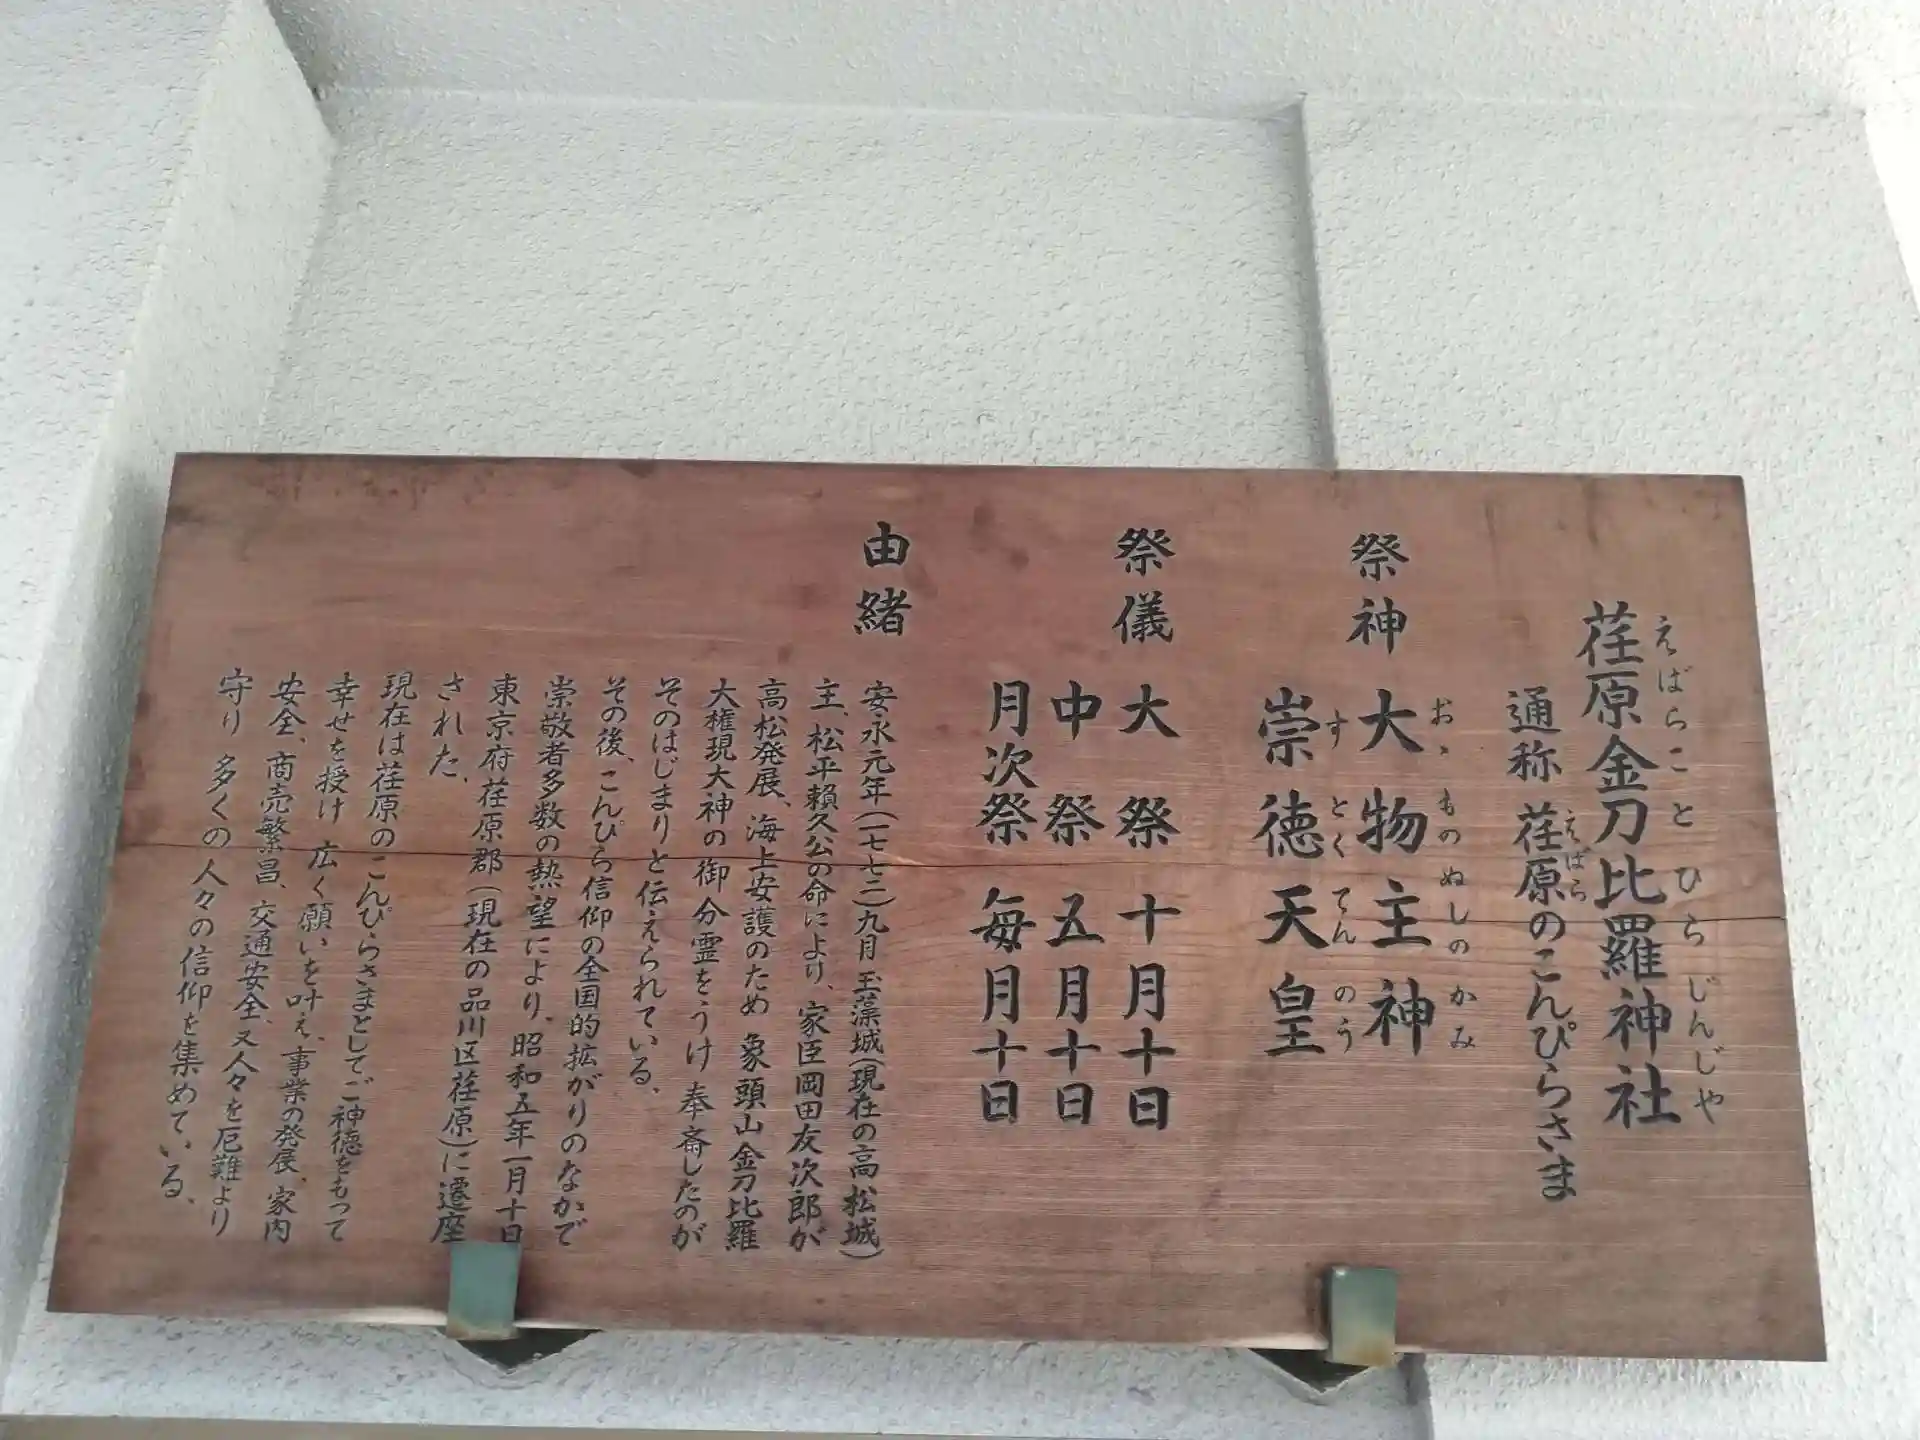 えばらことひらじんじゃ
荏原金刀比羅神社
えばら
通称 荏原のこんぴらさま
おゝものぬしのかみ
祭神 大物主神
すとくてんのう
崇徳天皇
祭儀 大祭 十月十日
中祭 五月十日
月次祭 毎月十日
由緒
安永元年(一七七二)九月 玉藻城(現在の高松城)
主、松平頼久公の命により、家臣岡田友次郎が
高松発展、海上安護のため 象頭山金刀比羅
大権現大神の御分霊をうけ 奉斎したのが
そのはじまりと伝えられている、
その後、こんぴら信仰の全国的拡がりのなかで
崇敬者多数の熱望により、昭和五年一月十日
東京府荏原郡(現在の品川区荏原)に遷座
された、
現在は荏原のこんぴらさまとしてご神徳をもって
幸せを授け 広く願いを叶え、事業の発展、家内
安全、商売繁昌、交通安全、又人々を厄難より
守り 多くの人々の信仰を集めている、